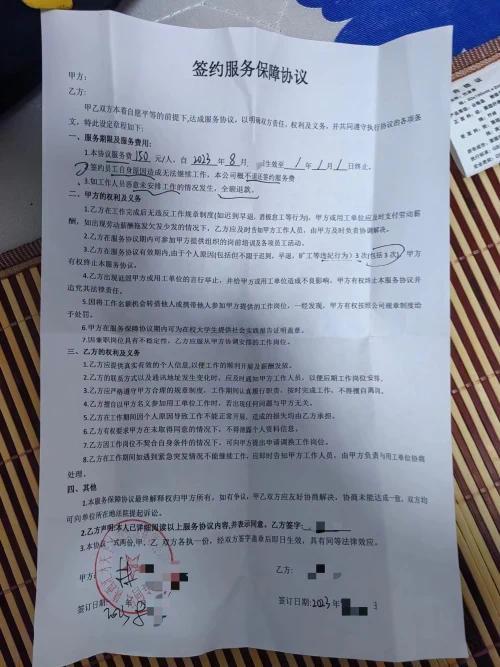 签约服务保障协议
甲方：
乙方：
甲乙双方本着自愿平等的前提下,达成服务协议，以明确双方责任，权利及义务，并共同遵守执行协议的各项条
文，特此设定章程如下：
一、服务期限及服务费用：
1.本协议服务费 150 元/人，自 2023 年 8 月 生效至 1 年 1 月 1 日终止。
2.签约员工自身原因造成无法继续工作，本公司概不退还签约服务费
3.如工作人员恶意未安排工作的情况发生，全额退款。
二、甲方的权利及义务
1.乙方在工作完成后无违反工作规章制度(如迟到早退，消极怠工等行为)，甲方或用工单位应及时支付劳动薪
酬，如出现劳动薪酬拖发欠发少发的情况下，乙方应及时告知甲方工作人员，由甲方及时负责协调解决。
2.乙方在服务协议期内可参加甲方提供组织的岗前培训及各项员工活动。
3.乙方在服务协议有效期内,由于个人原因(包括但不限于迟到，早退，旷工等违纪行为）3 次(包括 3 次)，甲方
有权终止本服务协议。
4.乙方出现诋毁甲方或用工单位的言行举止，并给甲方或用工单位造成不良影响，甲方有权终止本服务协议并
追究其法律责任。
5.因将工作名额机会转借他人或携带他人参加甲方提供的工作岗位，一经发现，甲方有权按照公司规章制度给
予处罚。
6.甲方在服务保障协议期内可为在校大学生提供社会实践报告证明盖章。
7.因兼职岗位具有不稳定性，乙方应服从甲方协调安排的工作岗位。
三、乙方的权利及义务
1.乙方应提供真实有效的个人信息,以便工作的顺利开展及薪酬发放。
2.乙方的联系方式以及通讯地址发生变化时，应及时通知甲方工作人员，以便后期工作岗位安排。
3.乙方应严格遵守甲方合理的规章制度，工作期间认真履行职责，按时完成工作，不得擅自离岗。
4.乙方擅自以甲方名义参加用工单位工作时，若出现任何问题与甲方无关。
5.乙方在工作期间因个人原因导致工作不能正常开展，造成的损失均由乙方承担。
6.乙方有权要求甲方在未取得同意的情况下，不得泄露个人资料信息。
7.乙方因工作岗位不契合自身条件的情况下，可向甲方提出申请调换工作岗位。
8.乙方在工作期间如遇到紧急突发情况不能继续工作，应即时告知甲方工作人员，由甲方负责与用工单位协商
处理。
四、其他
1.本服务保障协议最终解释权归甲方所有，如有争议，甲乙双方应友好协商解决，协商未能达成一致，双方均
可向单位所在地法院提起诉讼。
2.乙方声明本人已详细阅读以上服务协议内容,并表示同意。乙方签字：
3.本协议一式两份,甲、乙 双方各执一份，经双方签字盖章后即日生效，具有同等法律效应。
甲方： 乙方：
签订日期： 年 签订日期:2023 年
2023